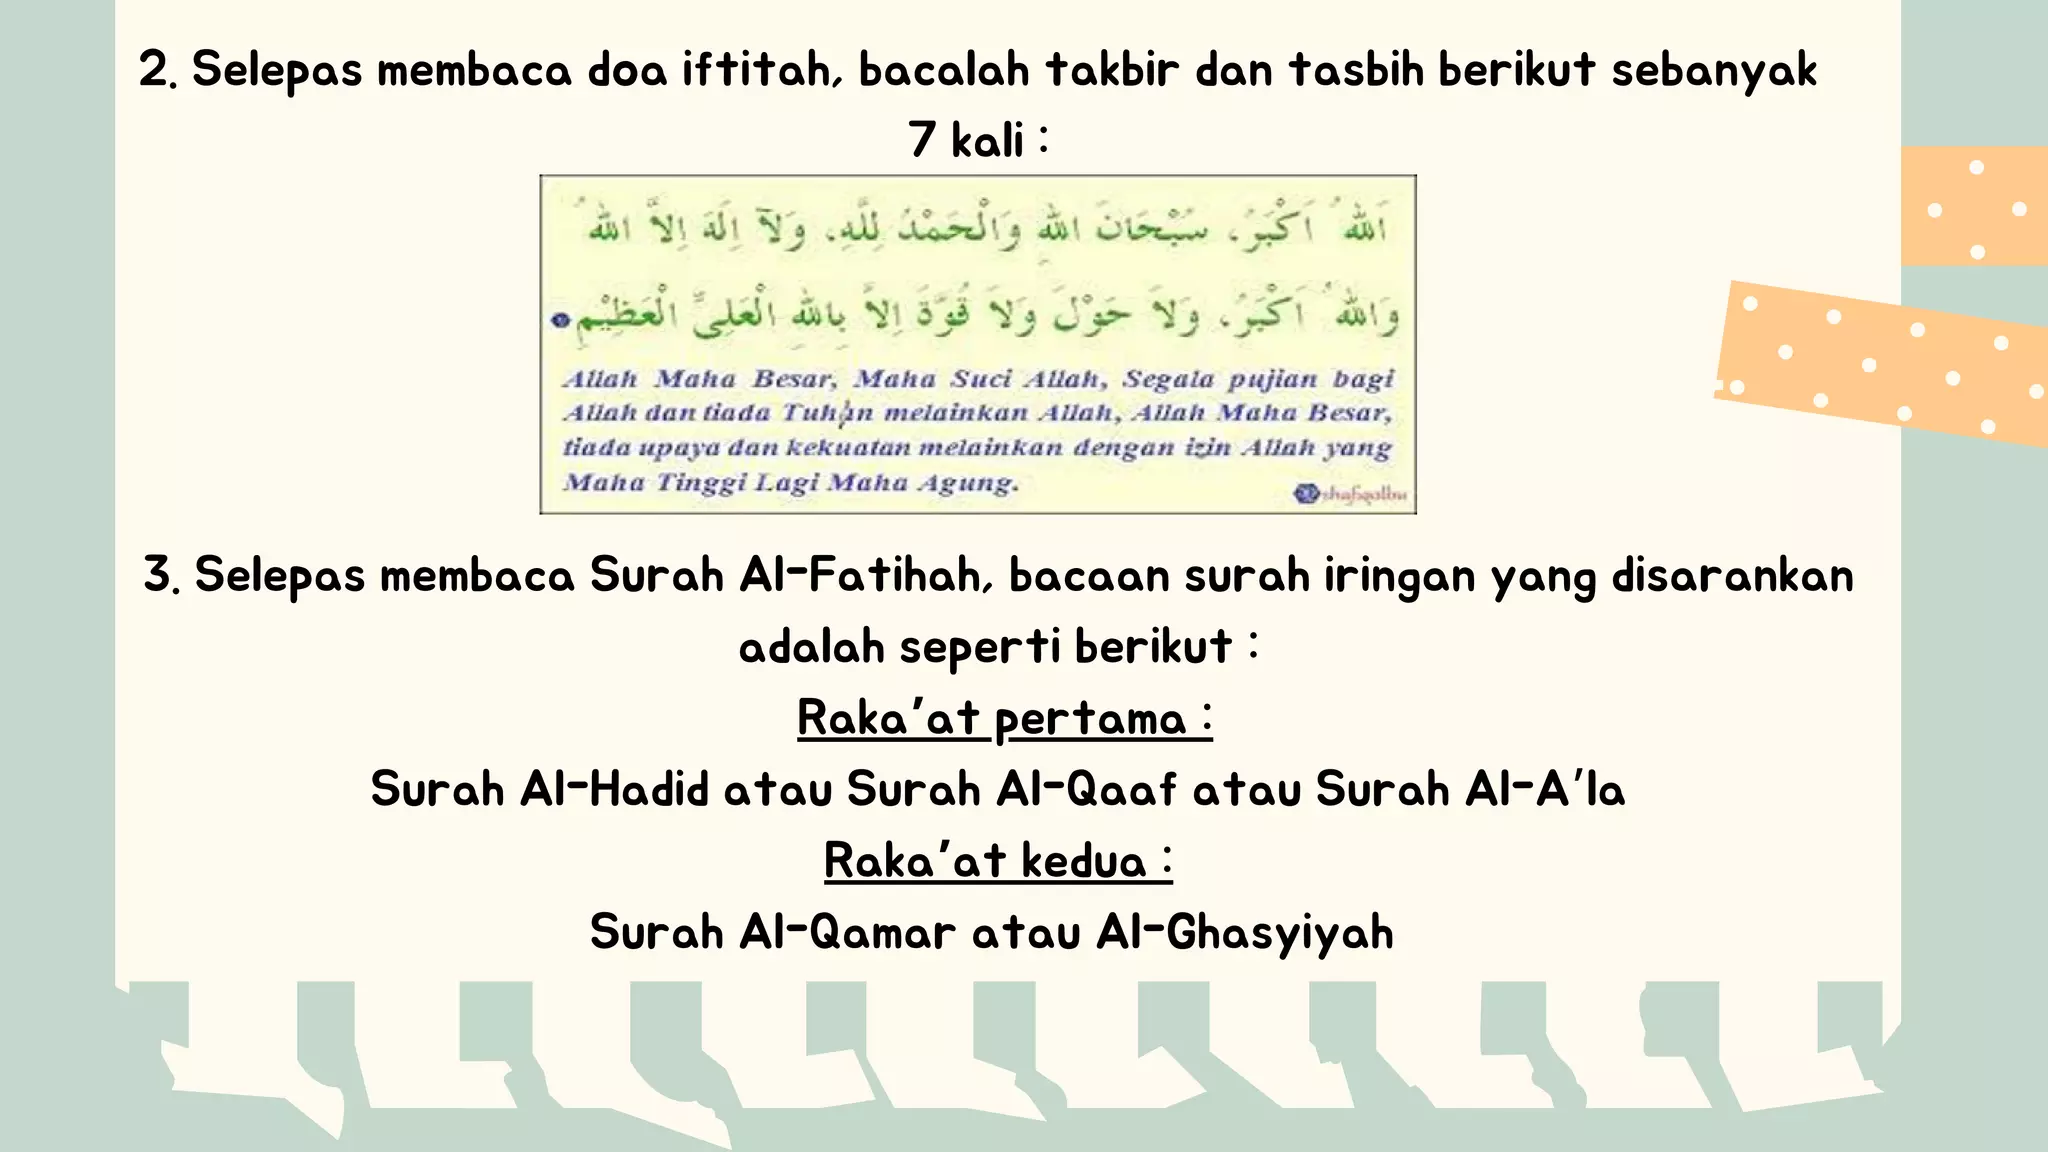 2. Selepas membaca doa iftitah, bacalah takbir dan tasbih berikut sebanyak
7 kali :
اَللهُ اَكْبَرُ، سُبْحَانَ اللهِ وَالْحَمْدُ لِلَّهِ، وَلَآ اِلَهَ اِلاَّ اللهُ
وَاللهُ اَكْبَرُ، وَلاَ حَوْلَ وَلاَ قُوَّةَ اِلاَّ بِاللهِ الْعَلِىِّ الْعَظِيْمِ
Allah Maha Besar, Maha Suci Allah, Segala pujian bagi
Allah dan tiada Tuhan melainkan Allah, Allah Maha Besar,
tiada upaya dan kekuatan melainkan dengan izin Allah yang
Maha Tinggi Lagi Maha Agung.
shafiqolbu
3. Selepas membaca Surah Al-Fatihah, bacaan surah iringan yang disarankan
adalah seperti berikut :
Raka'at pertama :
Surah Al-Hadid atau Surah Al-Qaaf atau Surah Al-A'la
Raka'at kedua :
Surah Al-Qamar atau Al-Ghasyiyah